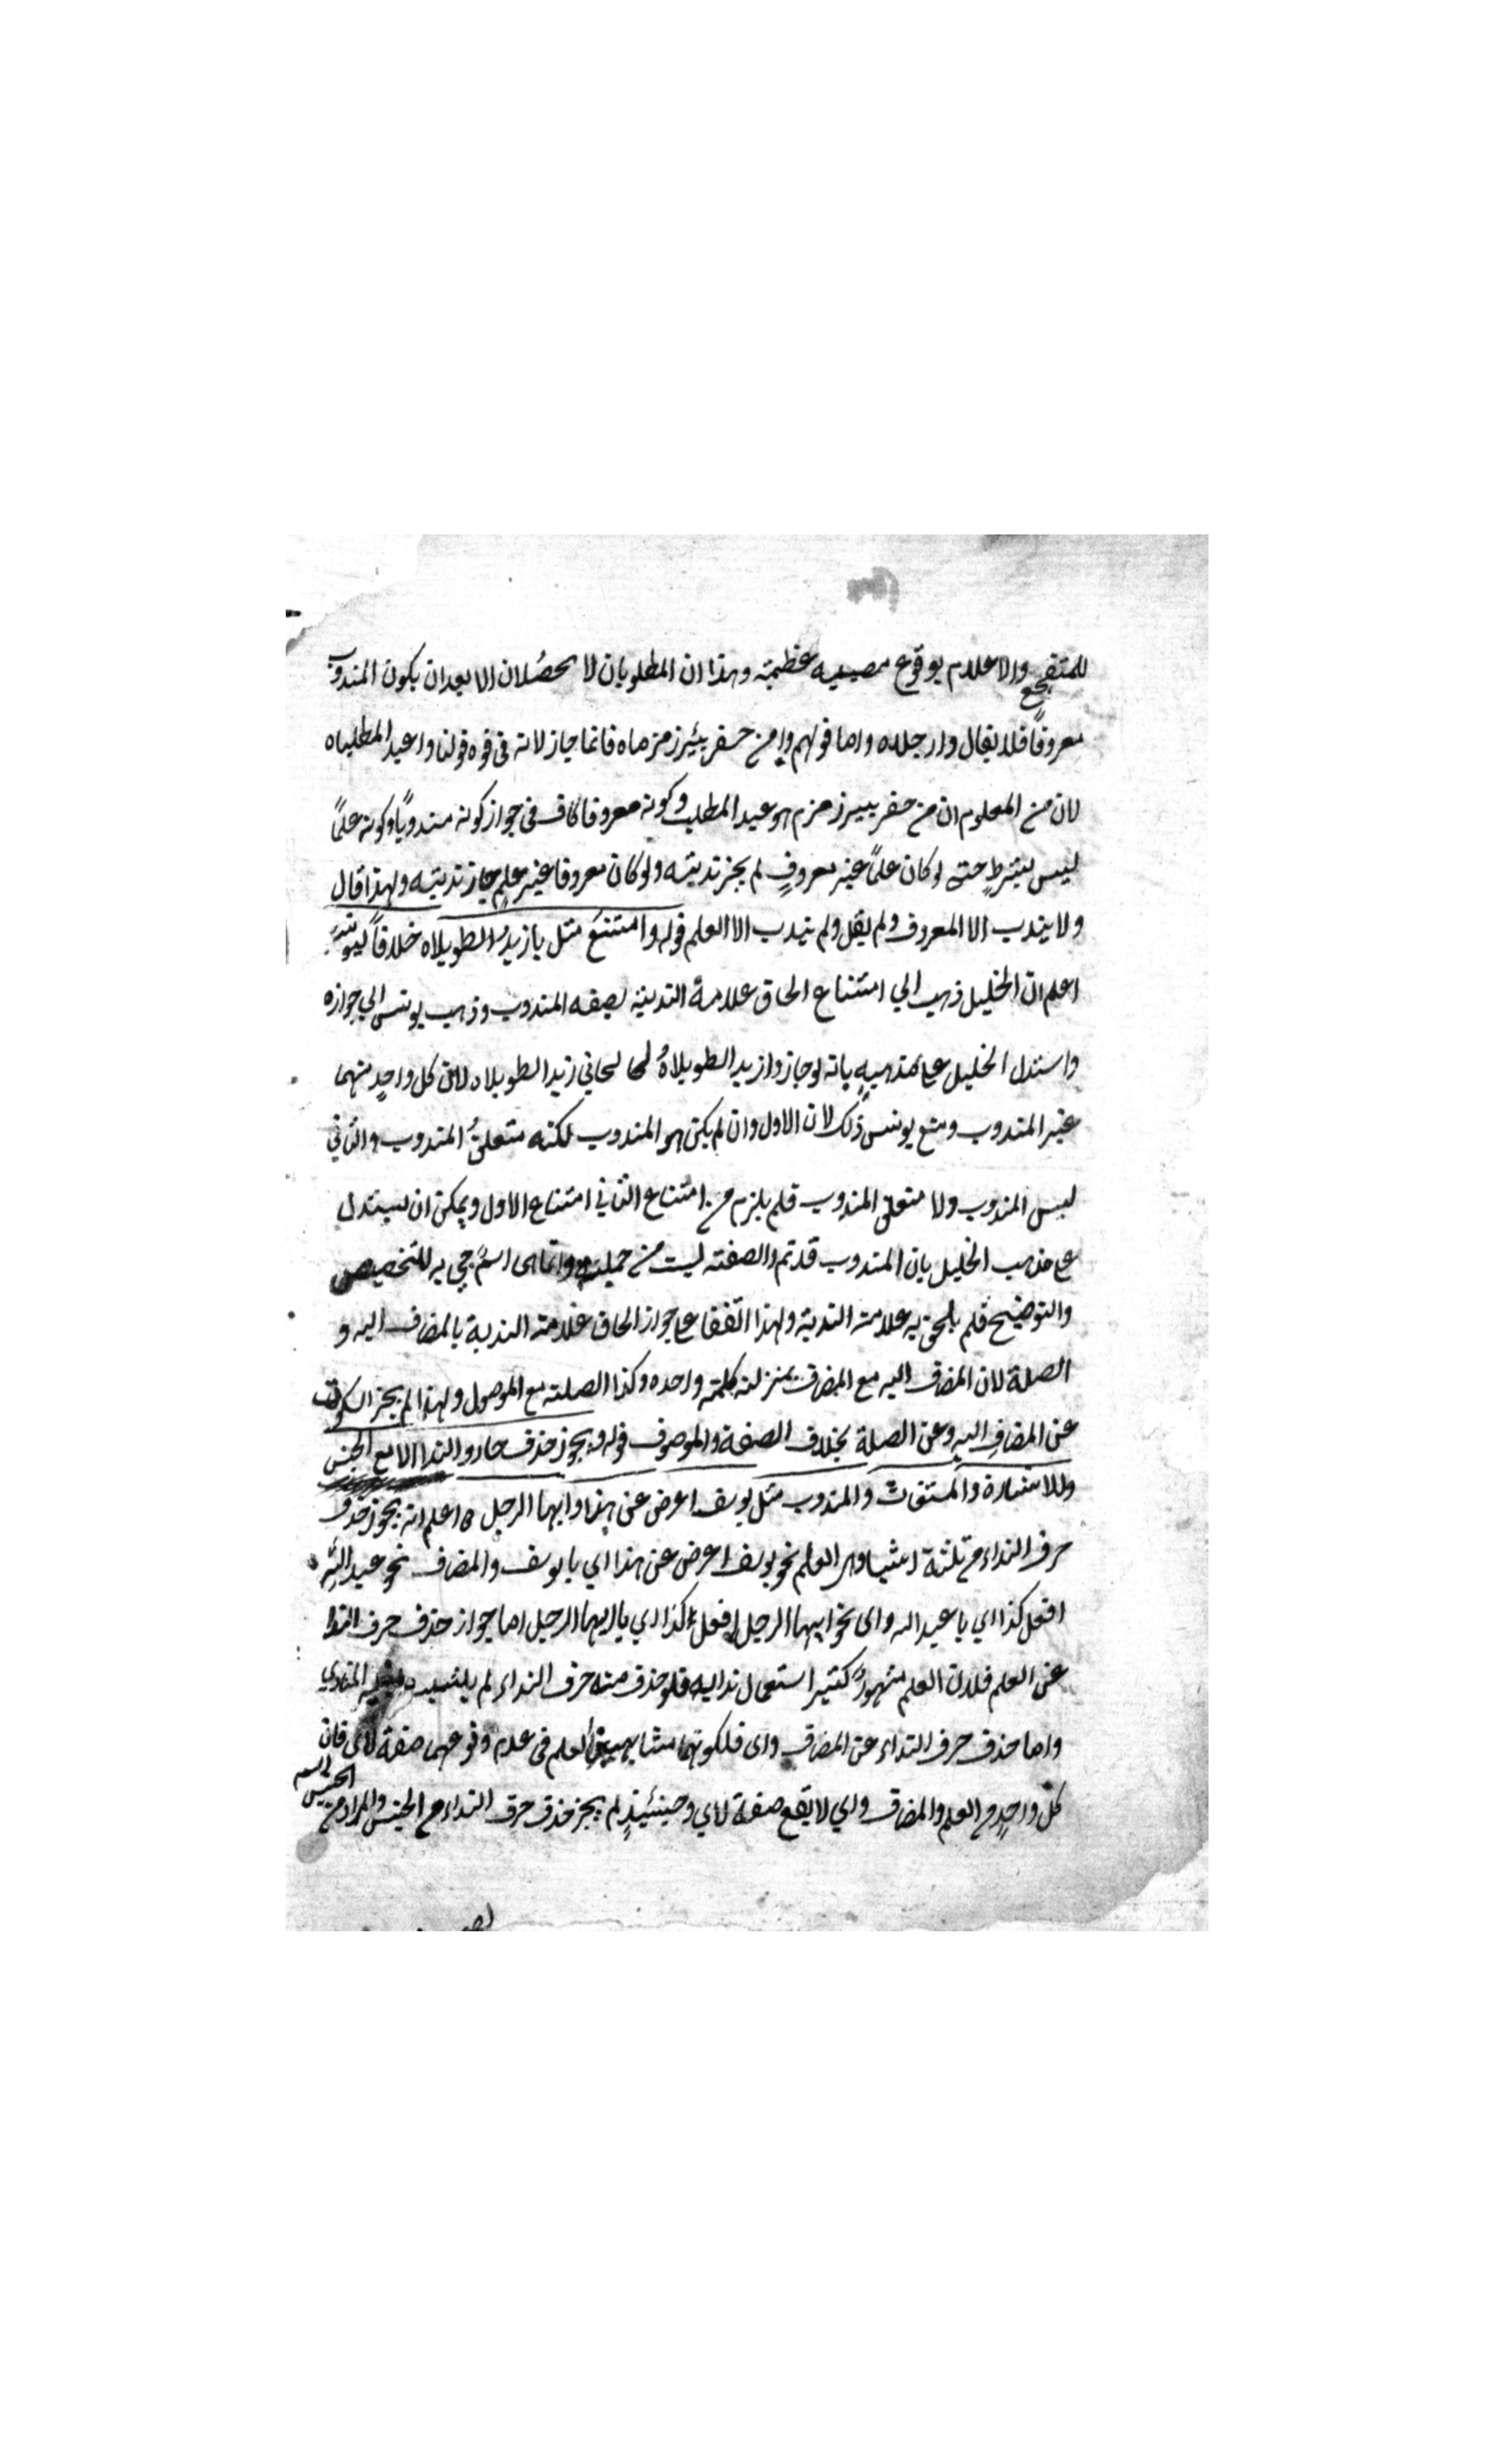 للمتفجع والاعلام بوقوع مصيبه عظيمة وهذا ان المطلوبان لا يحصُلان الا بعد ان يكون المندوب
معروفاً فلا يقال وارجلاه واما قولهم وا من حفر بئر زمزماه فانما جاز لانه فى قوه قولنا واعبد المطلباه
لان من المعلوم ان من حفر بير زمزم هو عبد المطلب وكونه معروفا كاف فى جواز كونه مندوباً وكونه علماً
ليس بشرطٍ حتى لو كان علماً غير معروفٍ لم يجز ندبته ولو كان معروفا غير علمٍ جاز ندبته ولهذا قال
ولا يندب الا المعروف ولم يقل ولم يندب الا العلم قوله وامتنع مثل يا زيدُ الطويلاه خلافاً ليونس
اعلم ان الخليل ذهب الي امتناع الحاق علامة الندبة بصفه المندوب وذهب يونس الي جوازه
واستدل الخليل على مذهبهٍ بانه لو جاز وازيد الطويلاهُ لجاز جاني زيد الطويلاه لان كل واحدٍ منهما
غير المندوب ومنع يونس ذلك لان الاول وان لم يكن هو المندوب لكنه متعلقُ المندوب والثاني
ليس المندوب ولا متعلق المندوب فلم يلزم من امتناع الثاني امتناع الاول ويمكن ان يستدل
على مذهب الخليل بان المندوب قد تم والصفة ليست من جملته وانما هى اسمٌ جي به للتخصيص
والتوضيح فلم يلحق به علامة الندبة ولهذا اتفقا على جواز الحاق علامة الندبة بالمضاف اليه و
الصلة لان المضاف اليه مع المضاف بمنزلة كلمة واحده وكذا الصلة مع الموصول ولهذا لم يجز السكوت
عن المضافِ اليه وعن الصلة بخلاف الصفة والموصوف قوله ويجوز حذف حرف الندا الا مع الجنس
والاشارة والمستغاث والمندوب مثل يوسف اعرض عن هذا وايها الرجل اعلم انه يجوز حذف
حرف النداء من ثلثة اشيا وهى العلم نحو يوسف اعرض عن هذا اي يا يوسف والمضاف نحو عبد اللهِ
افعل كذا اي يا عبد الله واى نحو ايها الرجل افعل كذا اي يا ايها الرجل اما جواز حذف حرف الندا
عن العلم فلان العلم مشهورٌ كثير استعمال ندايه فلو حذف منه حرف النداء لم يلتبس المنادي
واما حذف حرف النداء عن المضاف واى فلكونهما مشابهين العلم فى عدم وقوعهما صفة لاى فان
كل واحدٍ من العلم والمضاف واي لا يقع صفة لاي وحينئيذٍ لم يجز حذف حرف النداء من الجنس والمراد من
الجنس